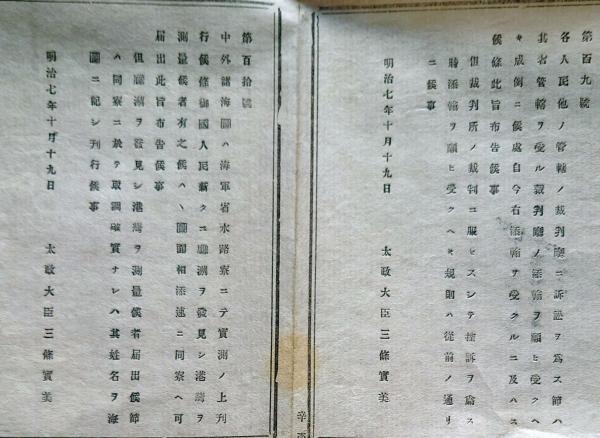 第百九號
各人民他ノ管轄ノ裁判廳ニ訴訟ヲ爲ス節ハ
其者管轄ヲ受ル裁判廳ノ添翰ヲ願ヒ受クヘ
キ成例ニ候處自今右添翰ヲ受クルニ及ハス
候條此旨布告候事
但裁判所ノ裁判ニ服セスシテ控訴ヲ爲ス
時添翰ヲ願ヒ受クヘキ規則ハ從前ノ通リ
ニ候事
明治七年十月十九日
太政大臣三條實美
第百拾號
中外諸海圖ハ海軍省水路寮ニテ實測ノ上刊
行候條御國人民新タニ礁洲ヲ發見シ港灣ヲ
測量候者有之候ハヽ圖面相添速ニ同寮ヘ可
届出此旨布告候事
但礁洲ヲ發見シ港灣ヲ測量候者届出候節
ハ同寮ニ於テ取調確實ナレハ其姓名ヲ海
圖ニ記シ刊行候事
明治七年十月十九日
太政大臣三條實美